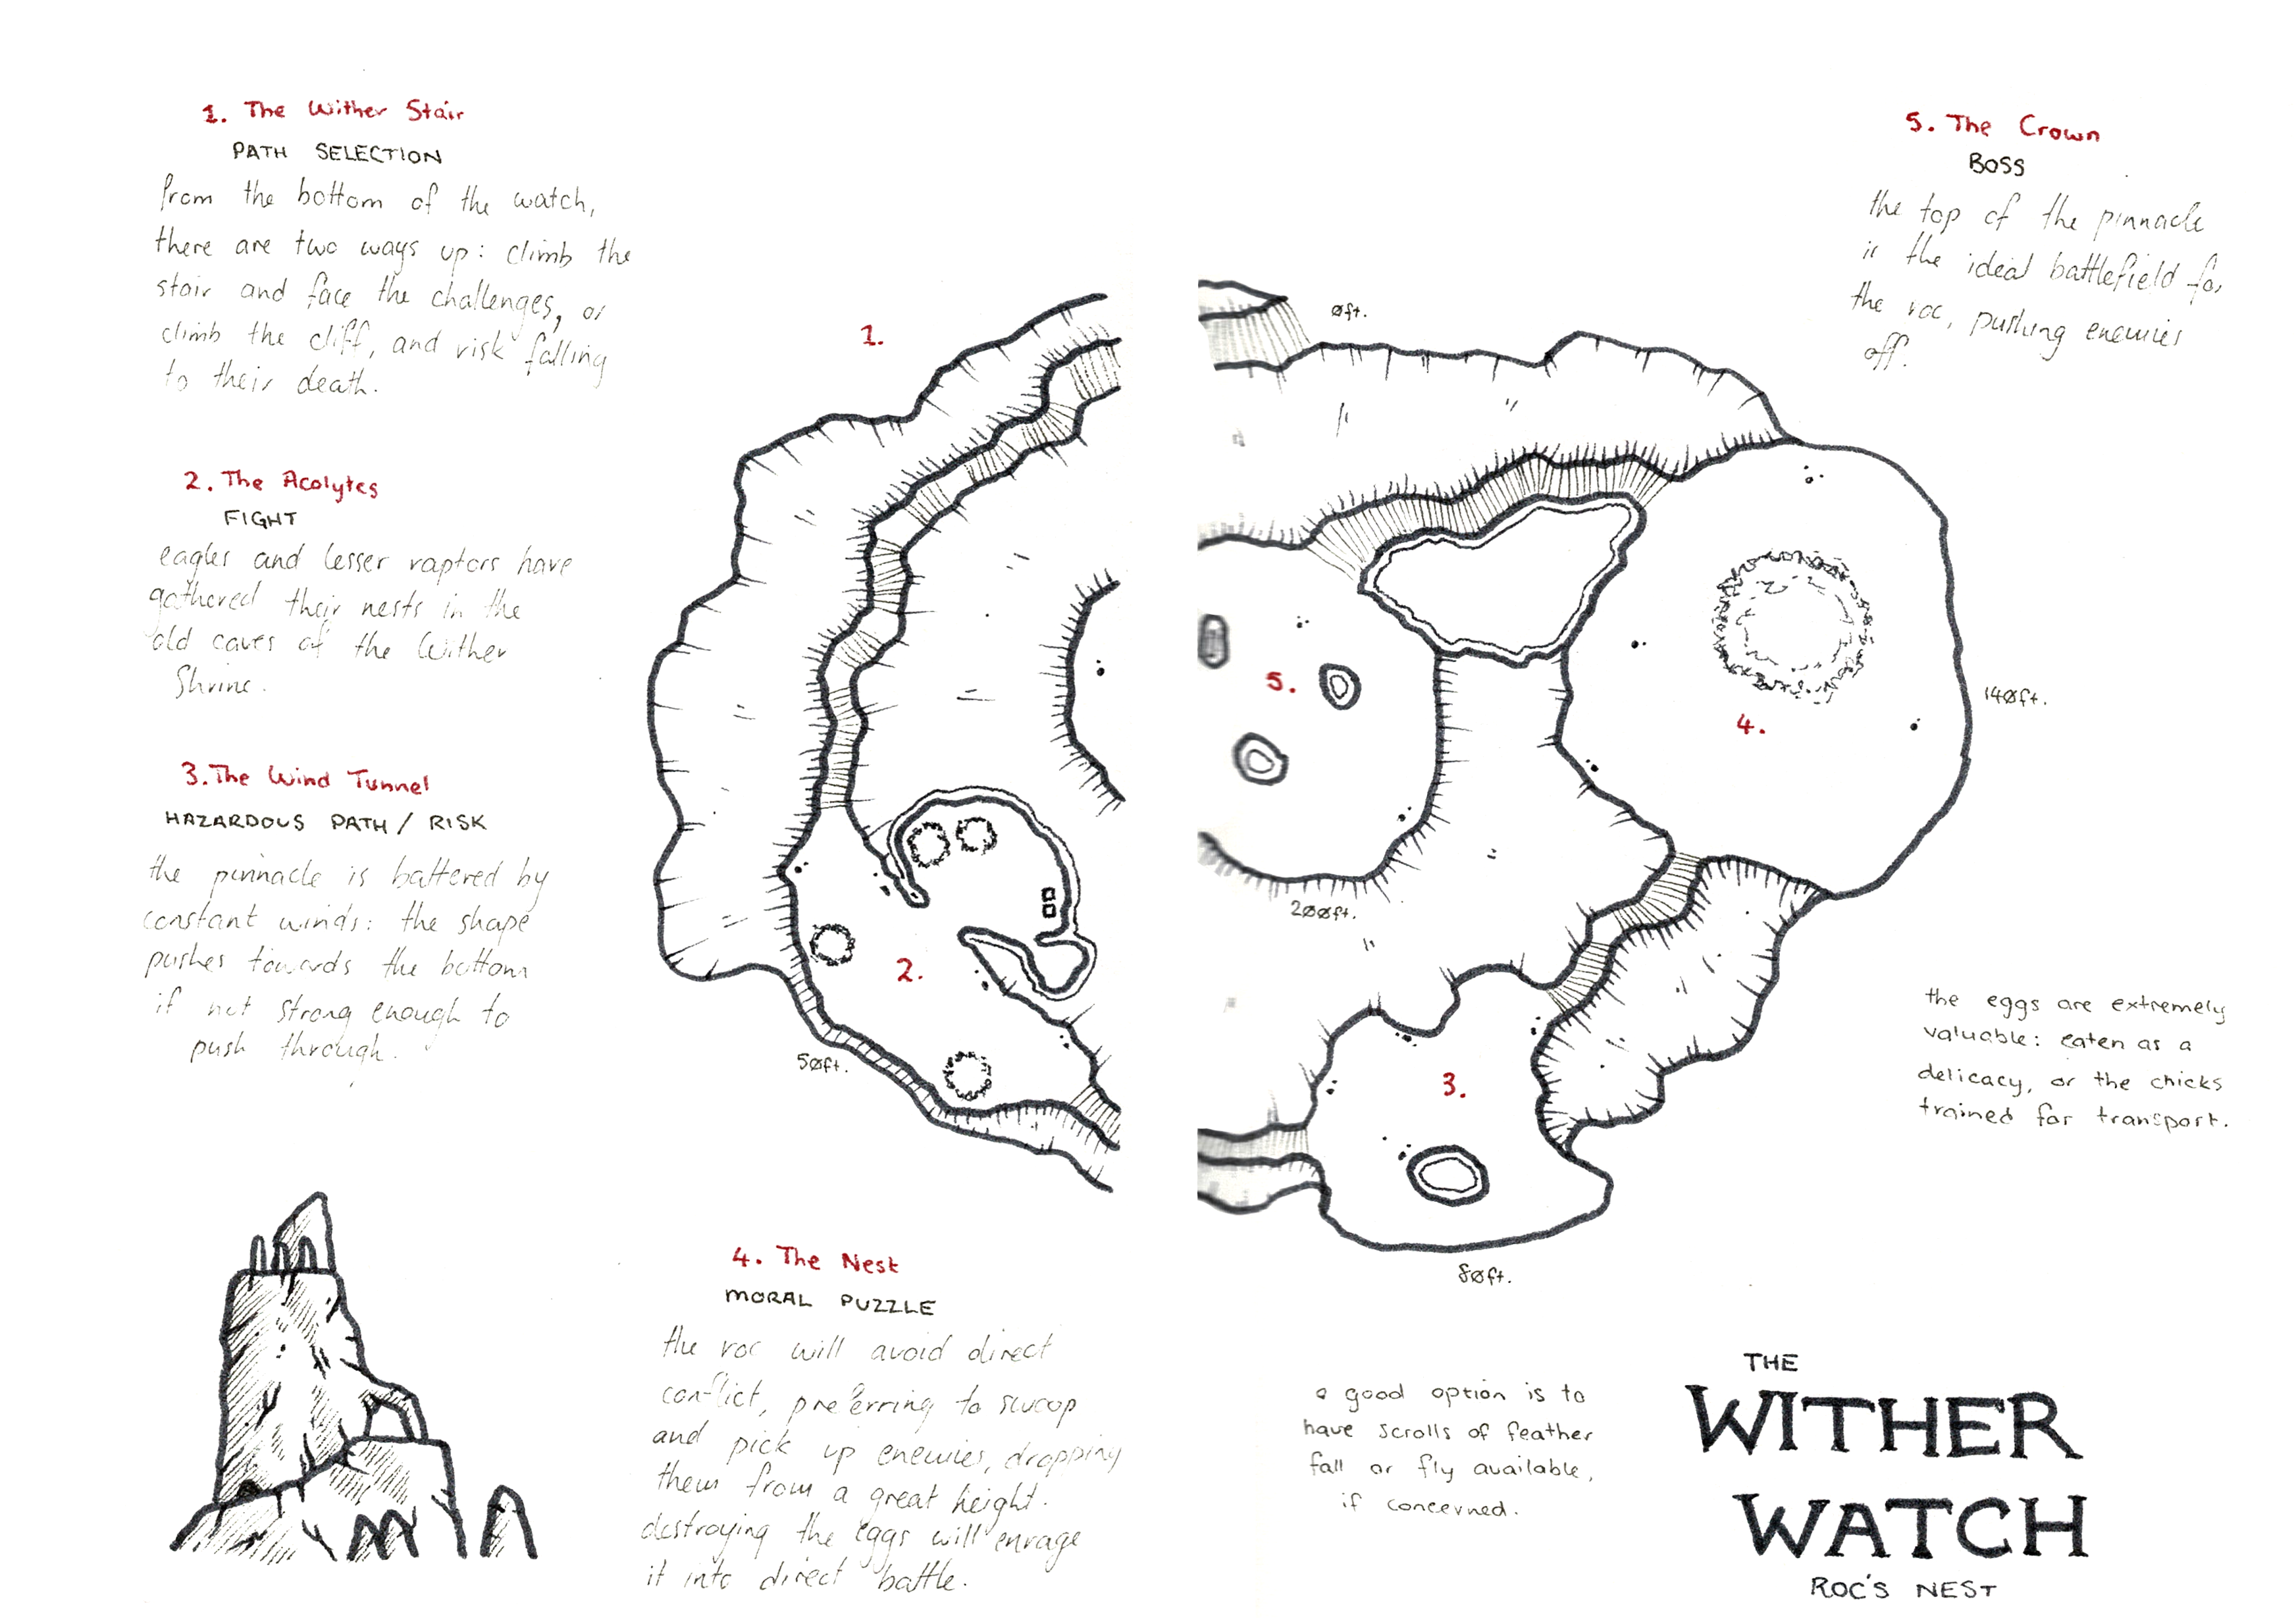 1. The Wither Stair
PATH SELECTION
from the bottom of the watch,
there are two ways up: climb the
stair and face the challenges, or
climb the cliff, and risk falling
to their death.
2. The Acolytes
FIGHT
eagles and lesser raptors have
gathered their nests in the
old caves of the Wither
Shrine.
3. The Wind Tunnel
HAZARDOUS PATH / RISK
the pinnacle is battered by
constant winds: the shape
pushes towards the bottom
if not strong enough to
push through.
1.
2.
50ft.
4. The Nest
MORAL PUZZLE
the roc will avoid direct
conflict, preferring to swoop
and pick up enemies, dropping
them from a great height.
destroying the eggs will enrage
it into direct battle.
0ft.
5.
4.
140ft.
200ft.
3.
80ft.
5. The Crown
BOSS
the top of the pinnacle
is the ideal battlefield for
the roc, pushing enemies
off.
the eggs are extremely
valuable: eaten as a
delicacy, or the chicks
trained for transport.
a good option is to
have scrolls of feather
fall or fly available,
if concerned.
THE
WITHER
WATCH
ROC'S NEST